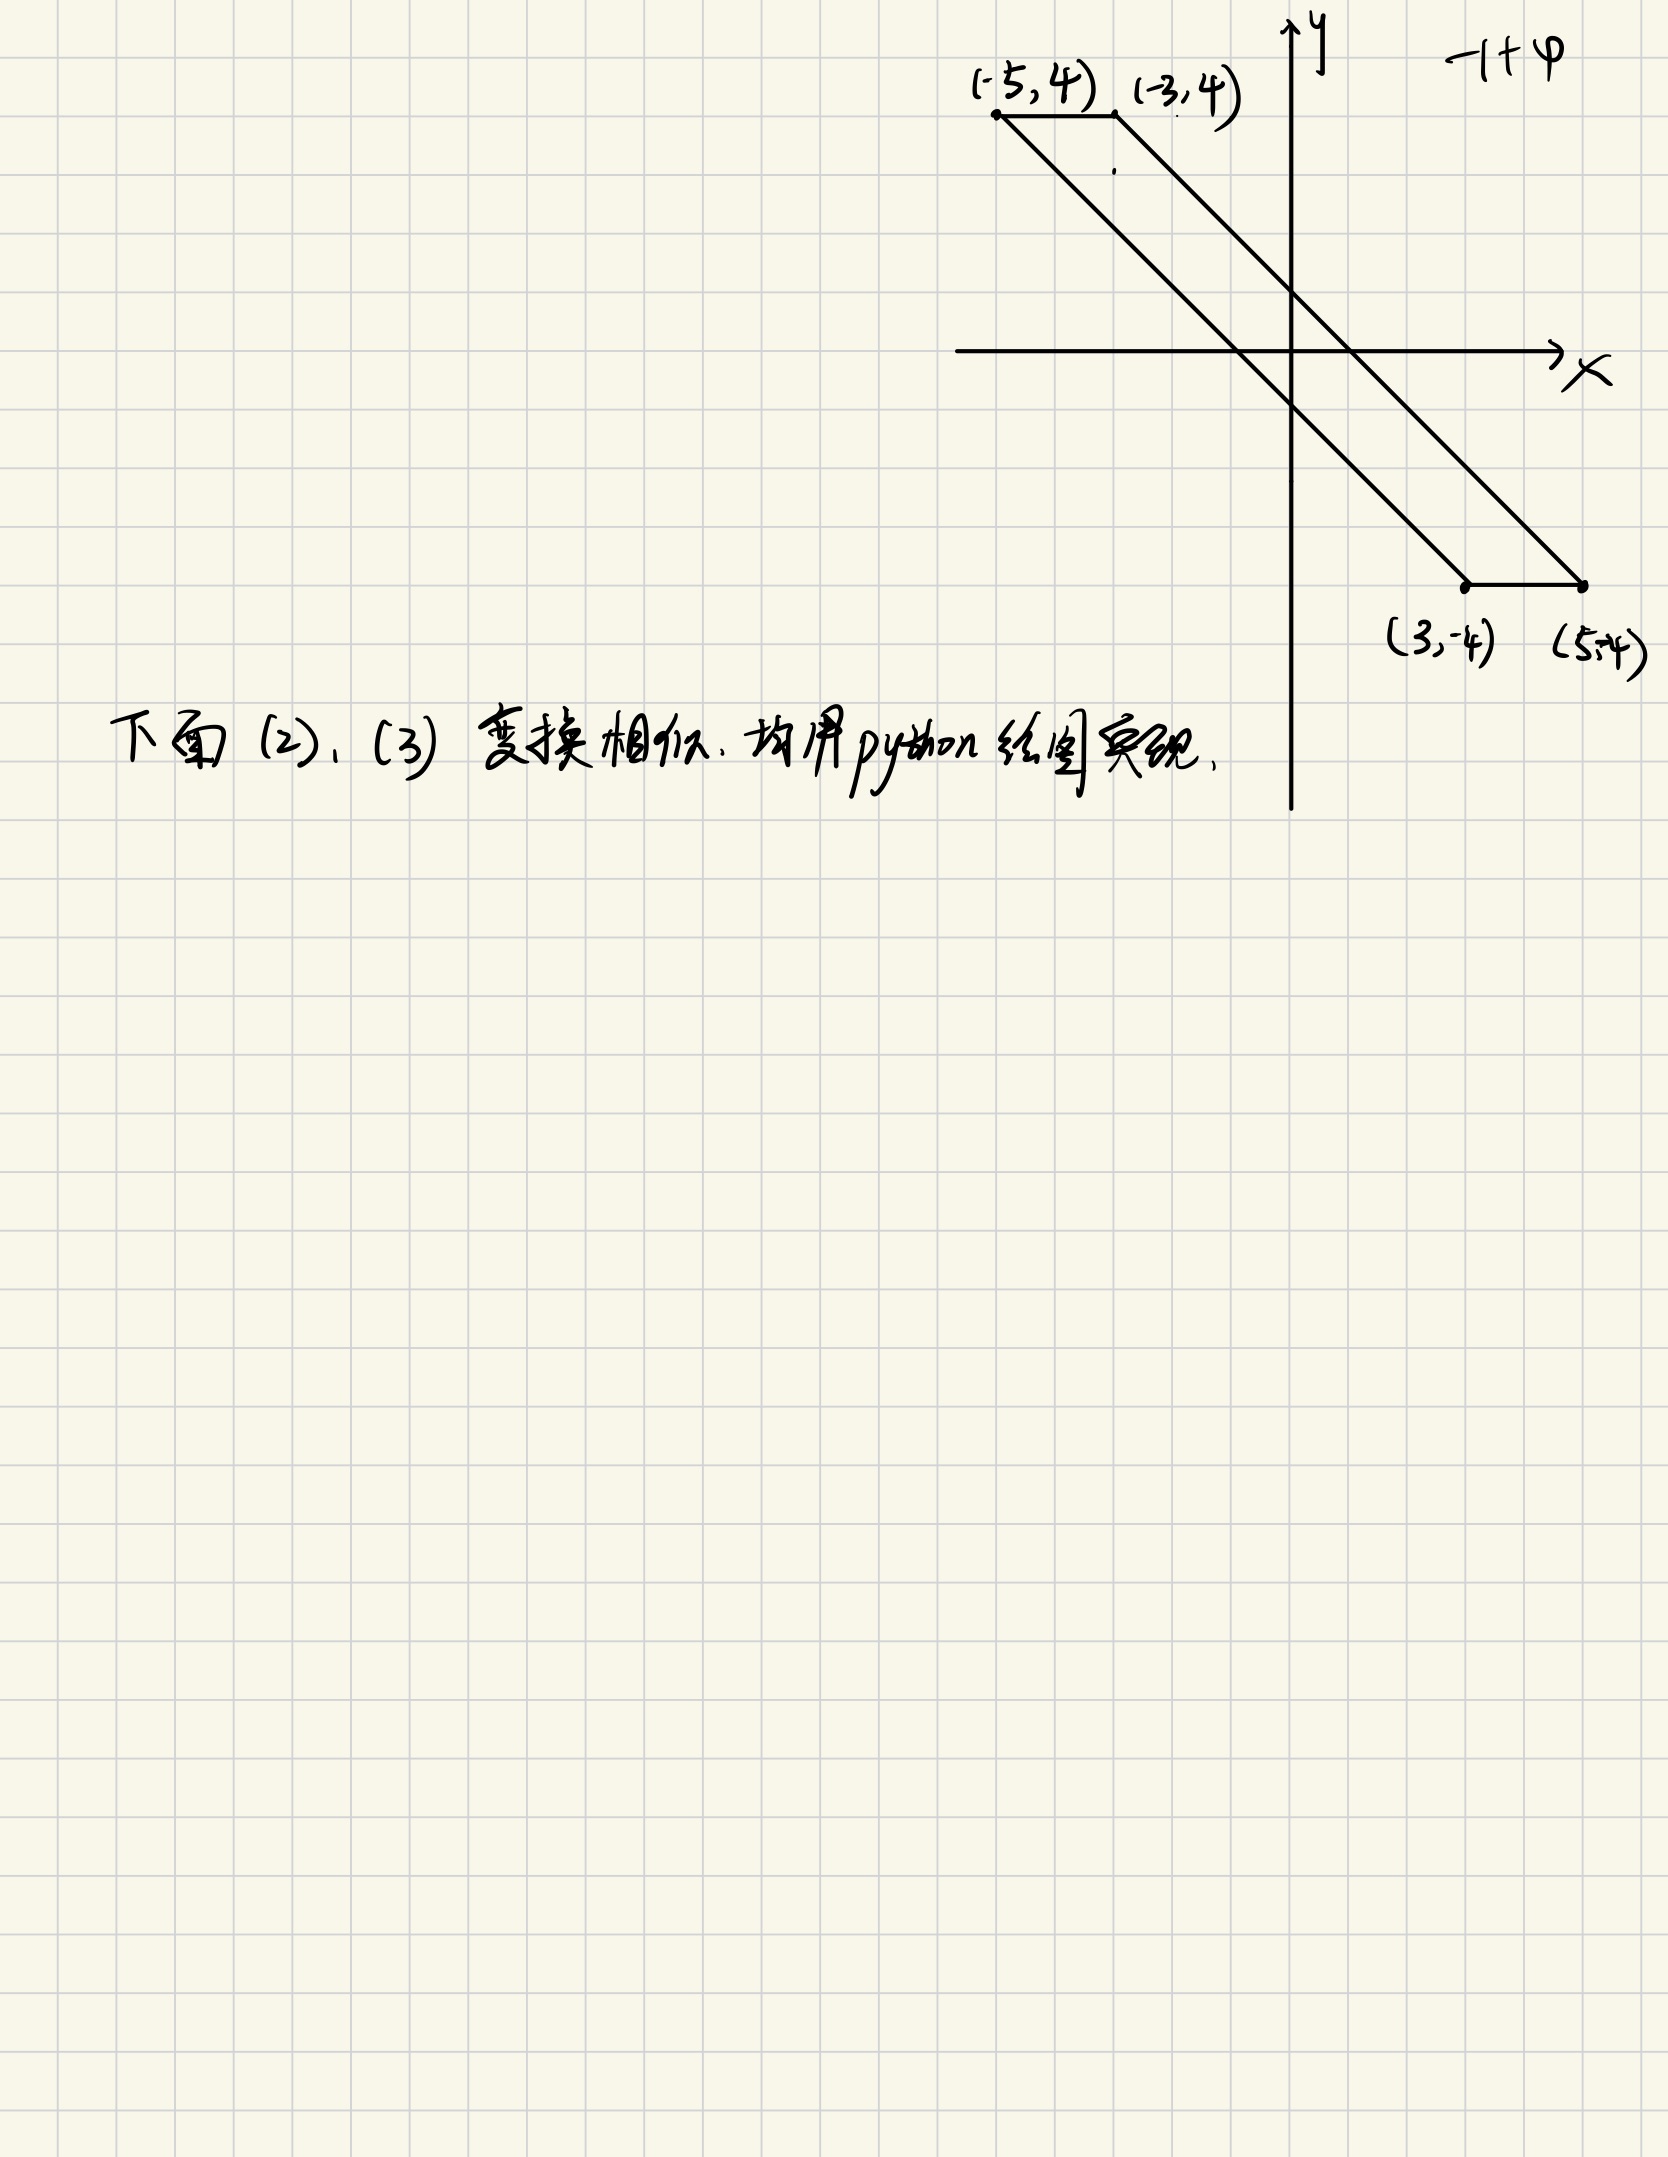 y
-1+φ
(-5,4) (-3,4)
x
(3,-4) (5,-4)
下面 (2)、(3) 变换相似.均用python绘图实现.